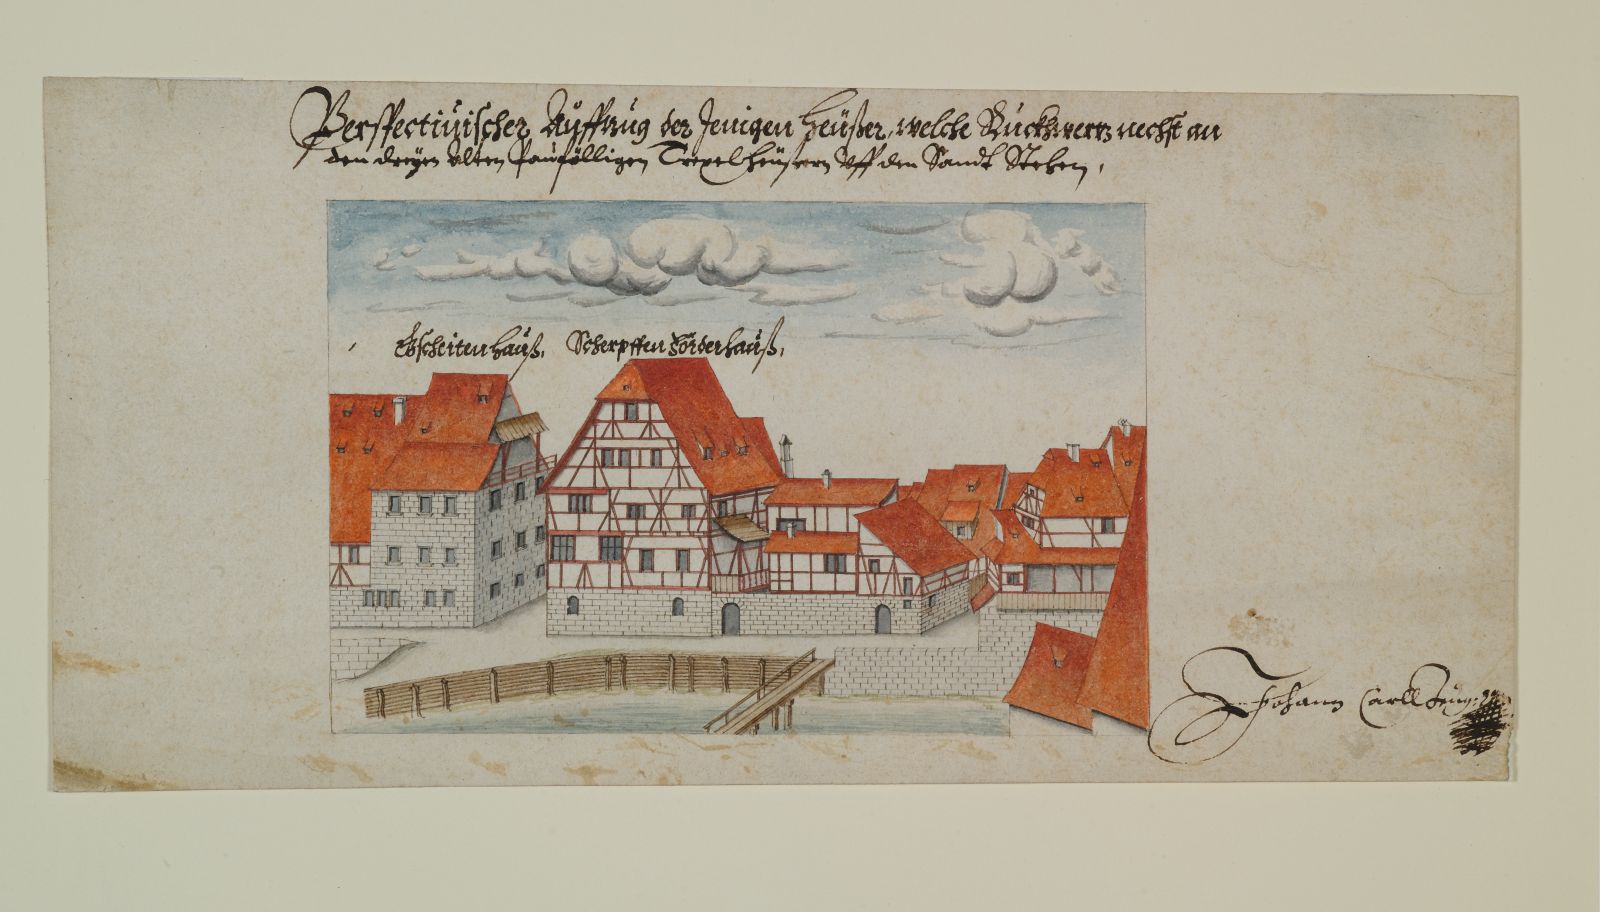 Perspectivischer Auffzug der Jenigen Heüßer, welche Ruckhwertz nechst an
den dreyen Alten Paufölligen Trexelheüsern Uff den Sandt Stehen,
Scherpffen Förderhauß,
Johann Carll